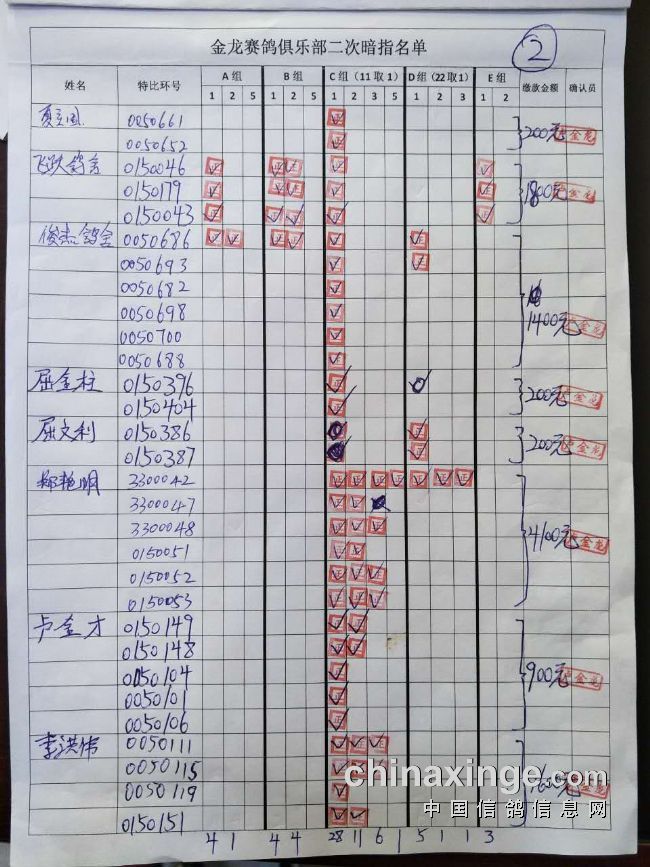 金龙赛鸽俱乐部二次暗指名单
②
姓名 特比环号 A 组 B 组 C 组（11 取 1） D 组（22 取 1） E 组 缴款金额 确认员
1 2 5 1 2 5 1 2 3 5 1 2 3 1 2
0050661
0050652 200元 金龙
飞跃鸽舍 0150046
0150179 1800元 金龙
0150043
俊杰鸽舍 0050686
0050693
0050682
0050698
0050700 1400元 金龙
0050688
屈金柱 0150396 200元 金龙
0150404
屈文利 0150386 200元 金龙
0150387
郑艳明 3300042
3300047
3300048 4100元 金龙
0150051
0150052
0150053
卢金才 0150149
0150148
0050104 900元 金龙
0050101
0050106
李洪伟 0050111
0050115
0050119 1600元 金龙
0150151
4 1 4 4 28 11 6 1 5 1 1 3
chinaxinge.com
中国信鸽信息网